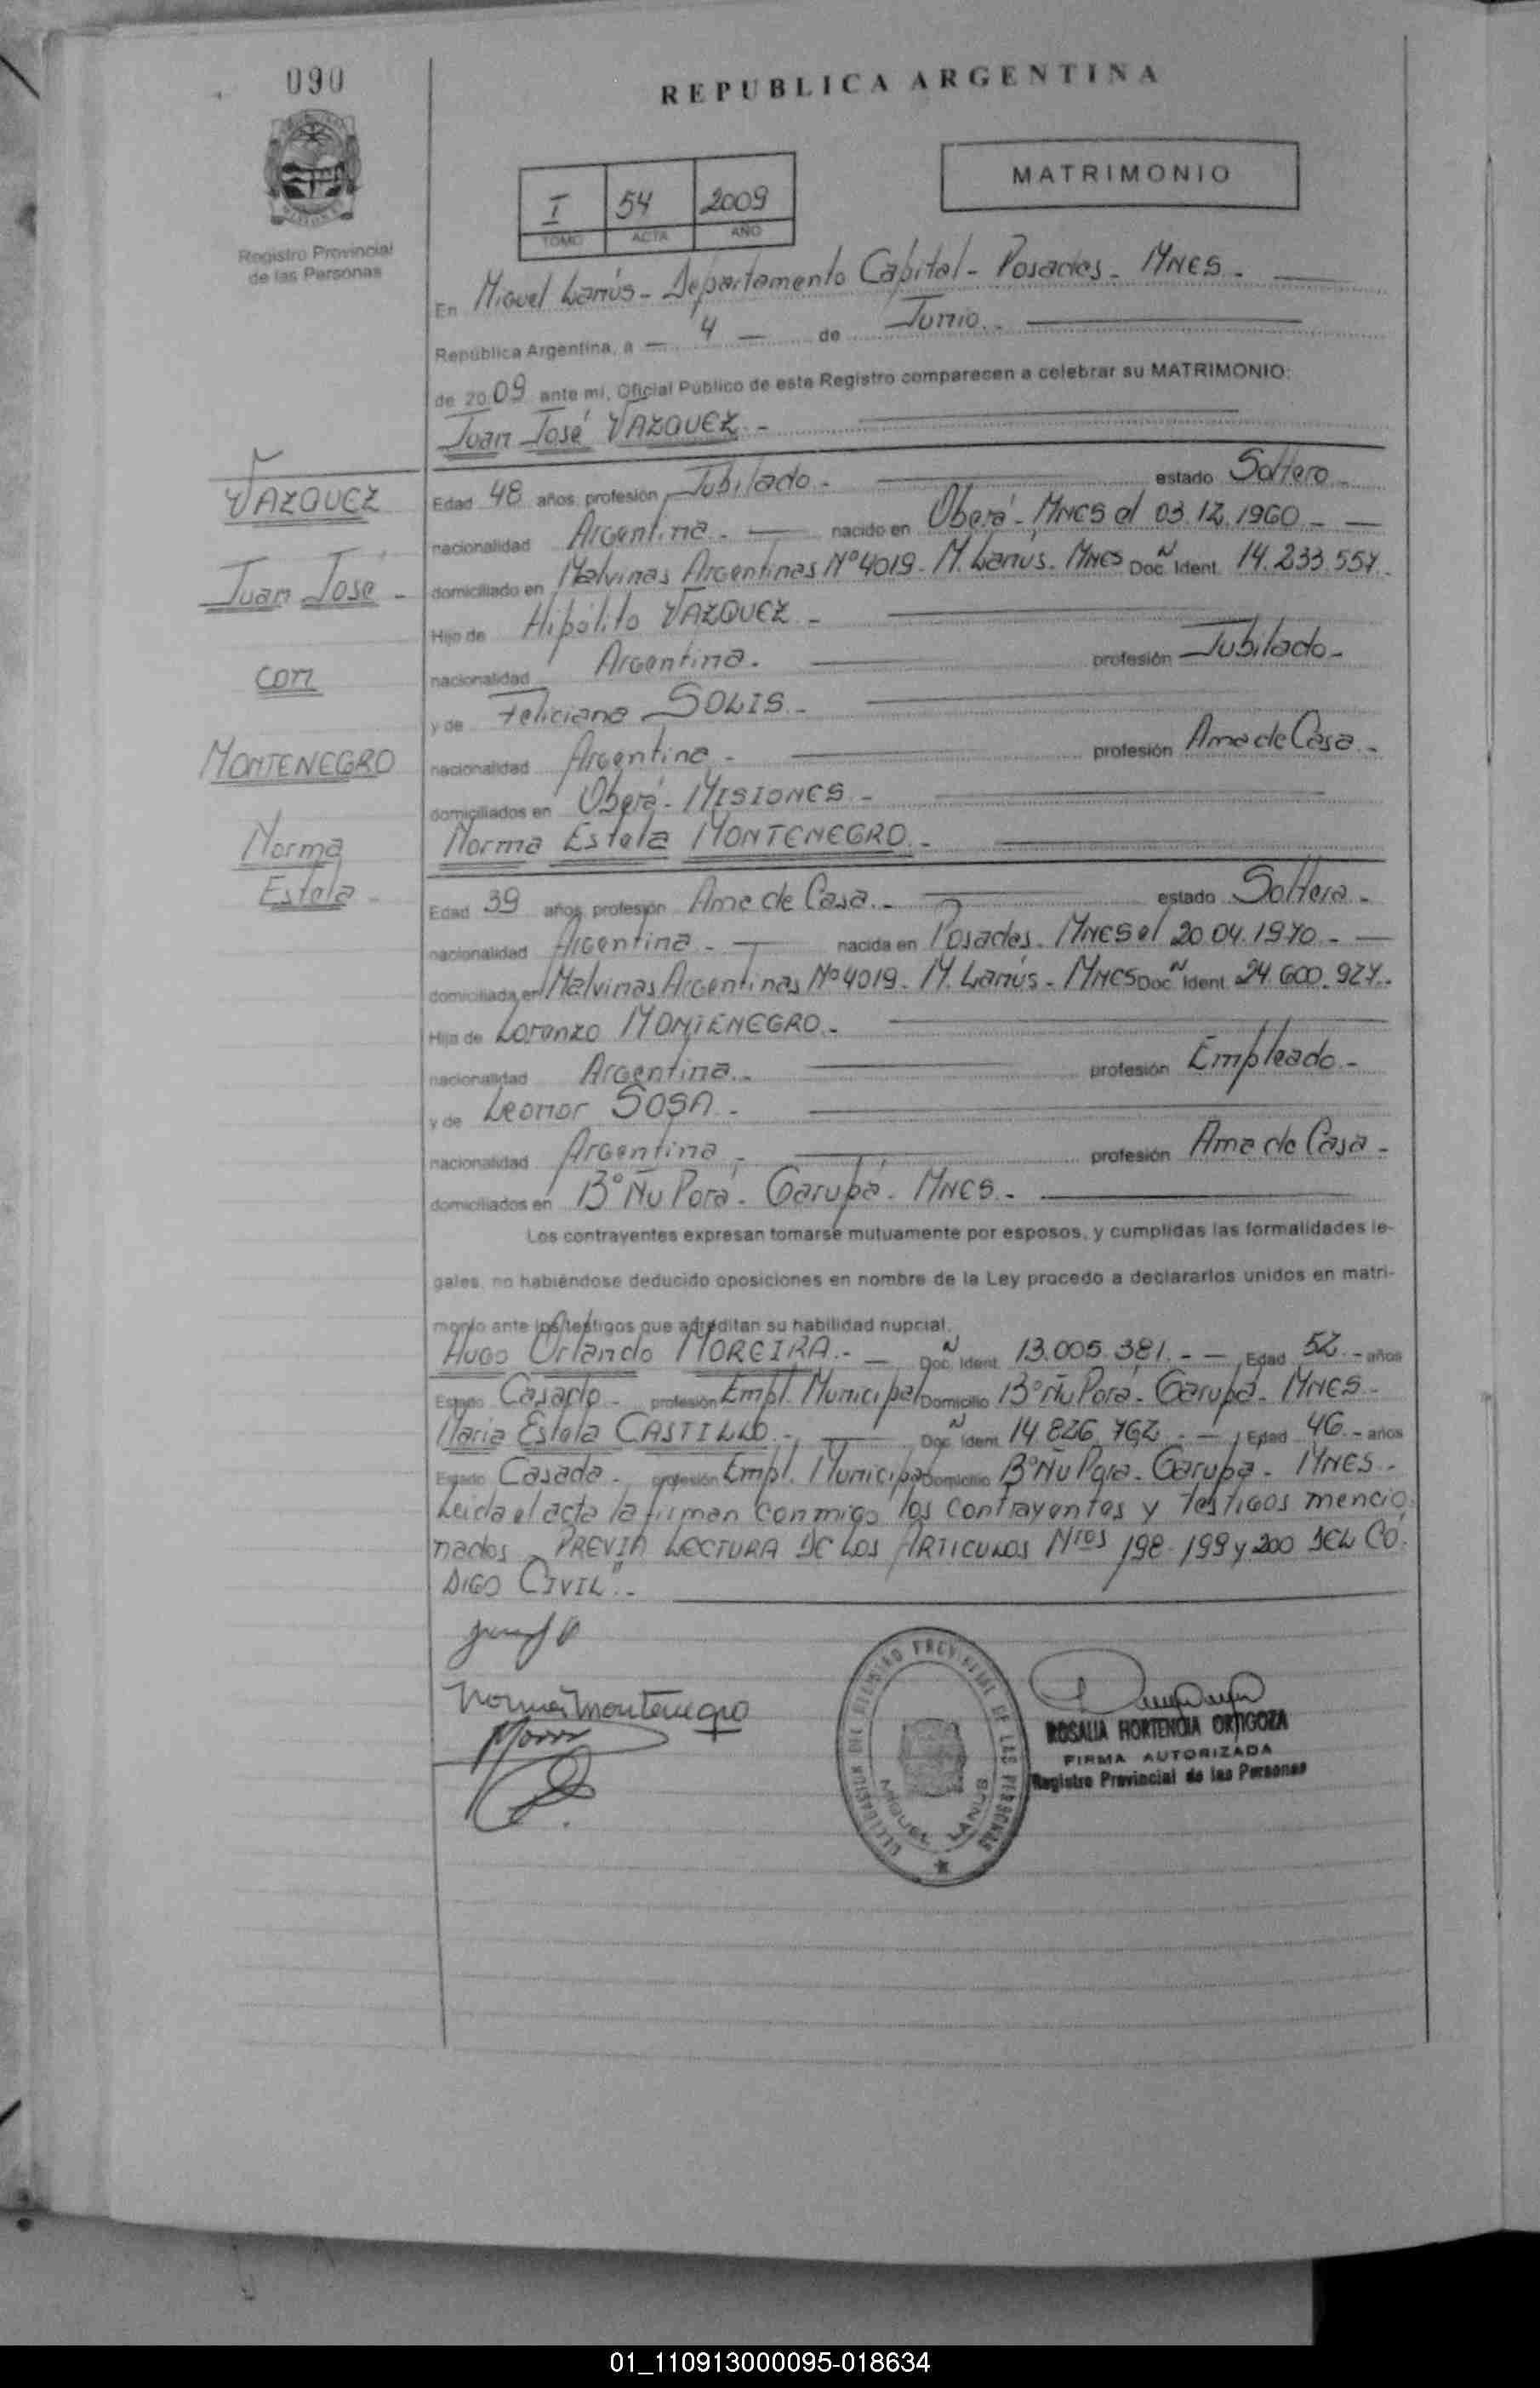 090
REPUBLICA ARGENTINA
MATRIMONIO
I 54 2009
TOMO ACTA AÑO
Registro Provincial
de las Personas
En Miguel Lanús - Departamento Capital - Posadas - MNES -
República Argentina, a - 4 - de Junio -
de 2009 ante mi, Oficial Público de este Registro comparecen a celebrar su MATRIMONIO:
Juan José VAZQUEZ -
VAZQUEZ
Juan José -
con
MONTENEGRO
Norma
Estela -
Edad 48 años, profesión Jubilado - estado Soltero -
nacionalidad Argentina - nacido en Oberá - MNES el 03.12.1960 -
domiciliado en Malvinas Argentinas Nº 4019 - M. Lanús - MNES Doc. Ident. 14.233.557 -
Hijo de Hipólito VAZQUEZ -
nacionalidad Argentina. profesión Jubilado -
y de Feliciana SOLIS -
nacionalidad Argentina - profesión Ama de Casa -
domiciliados en Oberá - MISIONES -
Norma Estela MONTENEGRO -
Edad 39 años, profesión Ama de Casa - estado Soltera -
nacionalidad Argentina - nacida en Posadas - MNES el 20.04.1970 -
domiciliada en Malvinas Argentinas Nº 4019 - M. Lanús - MNES Doc. Ident. 24.600.927 -
Hija de Lorenzo MONTENEGRO -
nacionalidad Argentina - profesión Empleado -
y de Leonor SOSA -
nacionalidad Argentina - profesión Ama de Casa -
domiciliados en Bº Ñu Porá - Garupá - MNES -
Los contrayentes expresan tomarse mutuamente por esposos, y cumplidas las formalidades le-
gales, no habiéndose deducido oposiciones en nombre de la Ley procedo a declararlos unidos en matri-
monio ante los testigos que acreditan su habilidad nupcial.
Hugo Orlando MOREIRA - Doc. Ident. 13.005.381 - Edad 52 - años
Estado Casado - profesión Empl. Municipal Domicilio Bº Ñu Porá - Garupá - MNES -
María Estela CASTILLO - Doc. Ident. 14.826.762 - Edad 46 - años
Estado Casada - profesión Empl. Municipal Domicilio Bº Ñu Porá - Garupá - MNES -
Leida el acta la firman conmigo los contrayentes y testigos mencio
nados - PREVIA LECTURA DE LOS ARTICULOS Nros 198 - 199 y 200 DEL CÓ
DIGO CIVIL" -
Norma Montenegro
REGISTRO PROVINCIAL DE LAS PERSONAS
MIGUEL LANUS
ROSALIA HORTENCIA ORTIGOZA
FIRMA AUTORIZADA
Registro Provincial de las Personas
01_110913000095-018634